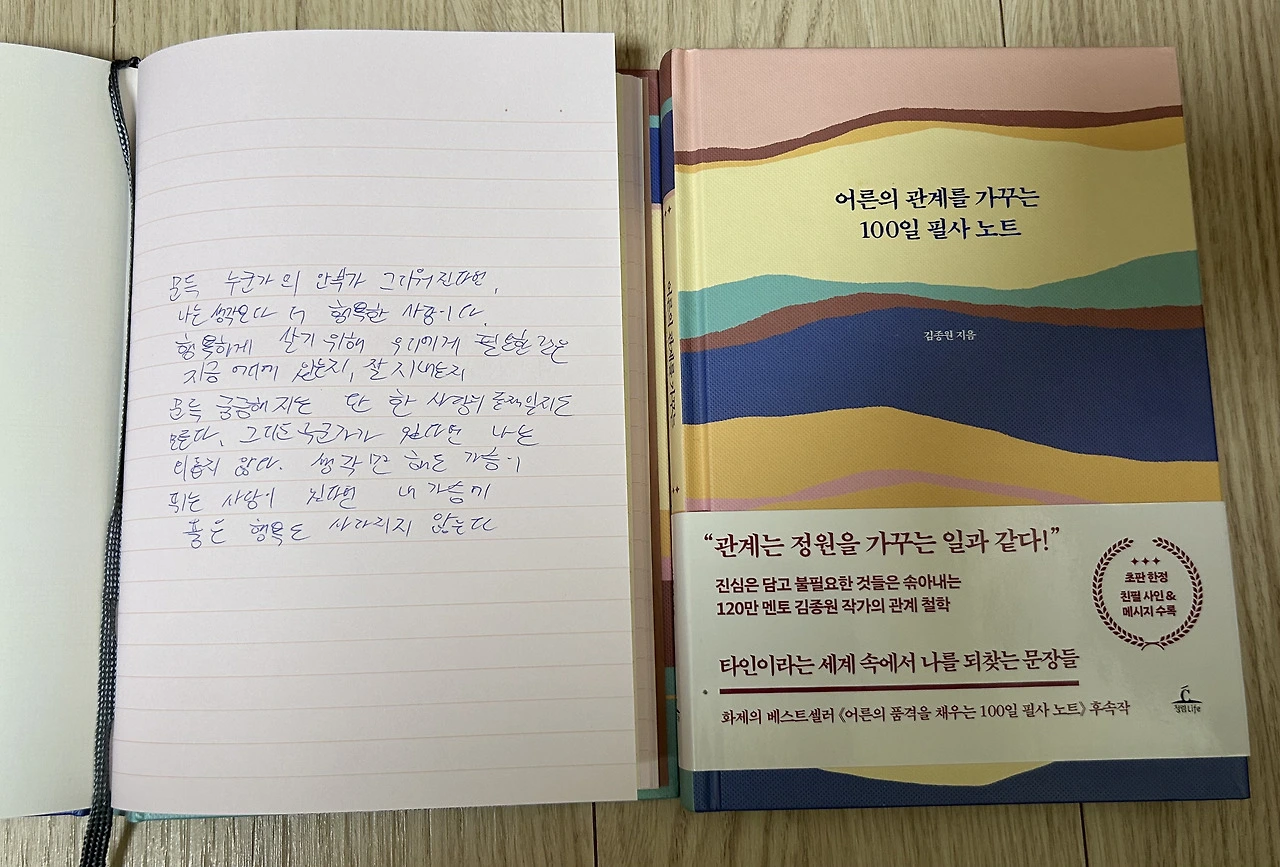 문득 누군가의 안부가 그리워진다면,
나는 생각보다 더 행복한 사람이다.
행복하게 살기 위해 우리에게 필요한 것은
지금 어디에 있는지, 잘 지내는지
문득 궁금해지는 단 한 사람의 존재일지도
모른다. 그리운 누군가가 있다면 나는
외롭지 않다. 생각만 해도 가슴이
뛰는 사람이 있다면 내 가슴에
품은 행복도 사라지지 않는다
어른의 관계를 가꾸는
100일 필사 노트
김종원 지음
“관계는 정원을 가꾸는 일과 같다!”
진심은 담고 불필요한 것들은 솎아내는
120만 멘토 김종원 작가의 관계 철학
초판 한정
친필 사인 &
메시지 수록
타인이라는 세계 속에서 나를 되찾는 문장들
화제의 베스트셀러 《어른의 품격을 채우는 100일 필사 노트》 후속작
청림Life
어른의 관계를 가꾸는